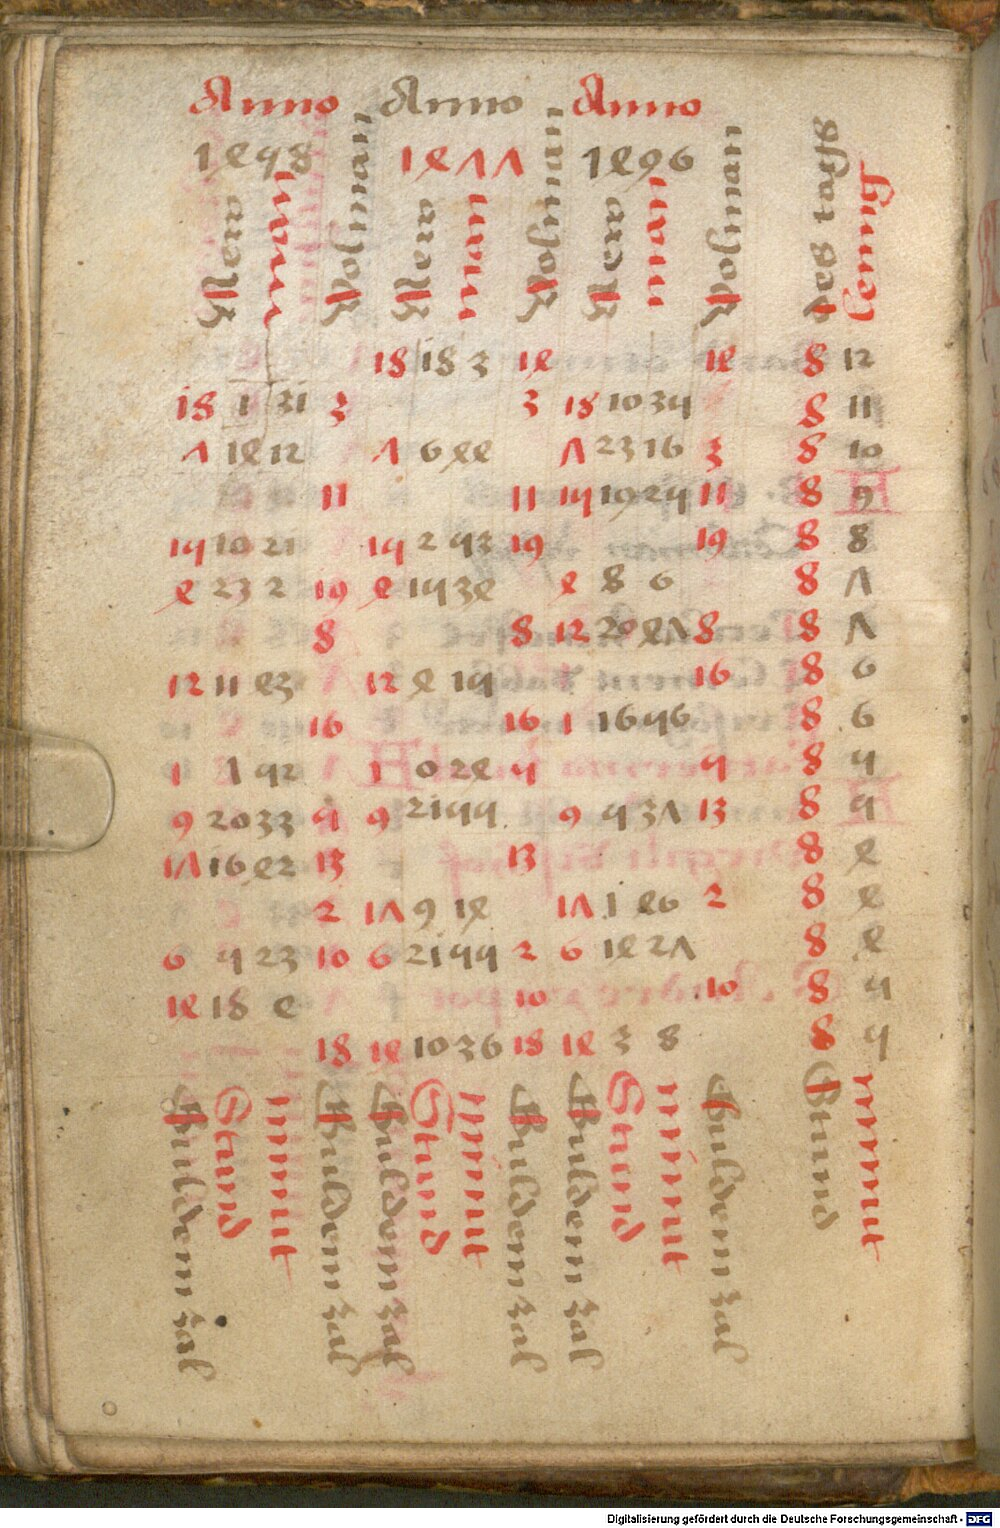 Anno Anno Anno
1458 1477 1496
New man Volman New man Volman New man Volman des tagss leng
18 18 3 14 14 8 12
18 1 31 3 3 18 10 35 8 11
7 14 12 7 6 44 7 23 16 3 8 10
11 11 15 19 25 11 8 9
15 10 21 15 2 53 19 19 8 8
4 23 2 19 4 15 34 4 8 6 8 7
8 8 12 20 47 8 8 7
12 11 43 12 4 15 16 8 6
16 16 1 16 56 8 6
1 7 52 1 0 24 5 5 8 5
9 20 33 5 9 21 55 9 5 37 13 8 5
17 16 42 13 13 8 4
2 17 9 14 17 1 46 2 8 4
6 5 23 10 6 21 55 2 6 14 27 8 4
14 18 4 10 10 8 5
18 14 10 36 18 14 3 8 8 5
Gulden zal Stund minut Gulden zal Gulden zal Stund minut Gulden zal Gulden zal Stund minut Gulden zal Stund minut
Digitalisierung gefördert durch die Deutsche Forschungsgemeinschaft - DFG